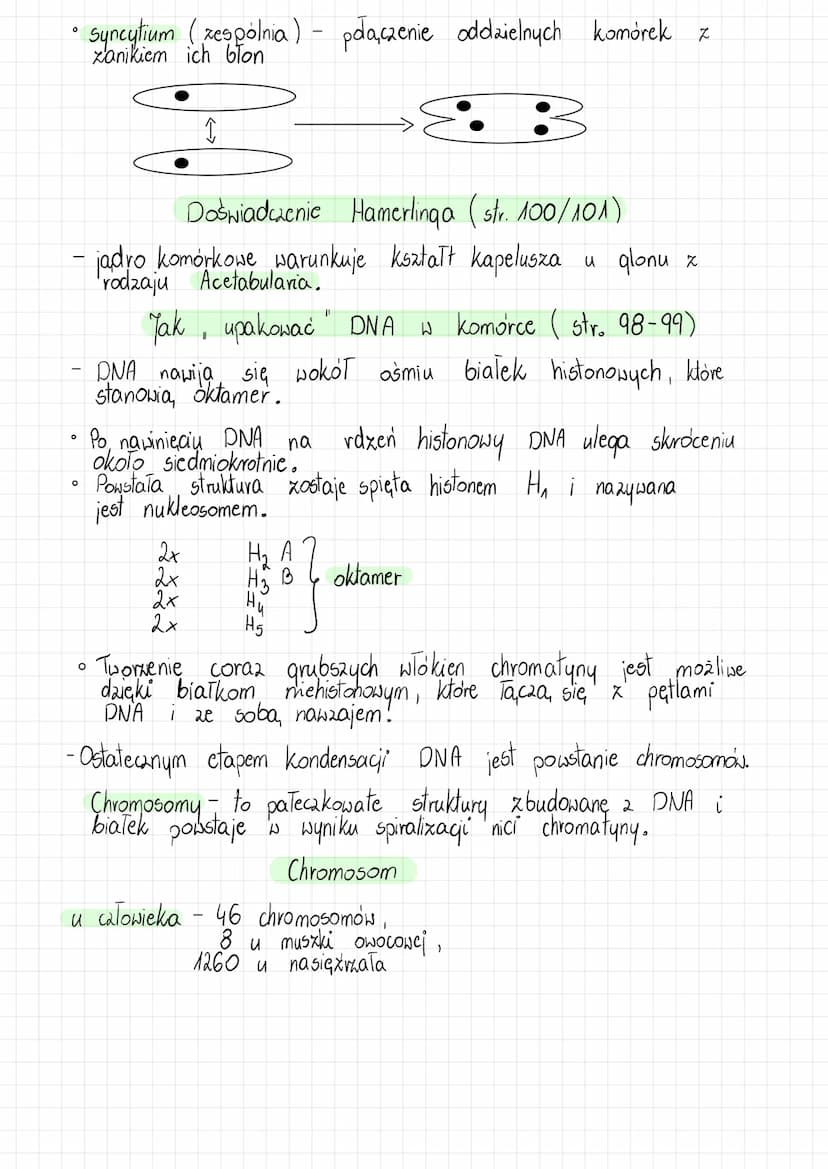 ° syncytium (zespólnia) - płączenie oddzielnych komórek z
zanikiem ich błon
Doświadczenie Hamerlinga (str. 100/101)
- jądro komórkowe warunkuje kształt kapelusza u glonu z
rodzaju Acetabularia.
Jak „upakować" DNA w komórce (str. 98-99)
- DNA nawija się wokół ośmiu białek histonowych, które
stanowią oktamer.
° Po nawinięciu DNA na rdzeń histonowy DNA ulega skróceniu
około siedmiokrotnie.
° Powstała struktura zostaje spięta histonem H1 i nazywana
jest nukleosomem.
2x H2 A
2x H3 B } oktamer
2x H4
2x H5
° Tworzenie coraz grubszych włókien chromatyny jest możliwe
dzięki białkom niehistonowym, które łączą się z pętlami
DNA i ze sobą nawzajem.
- Ostatecznym etapem kondensacji DNA jest powstanie chromosomów.
Chromosomy - to pałeczkowate struktury zbudowane z DNA i
białek powstaje w wyniku spiralizacji nici chromatyny.
Chromosom
u człowieka - 46 chromosomów,
8 u muszki owocowej,
1260 u nasięźrzała